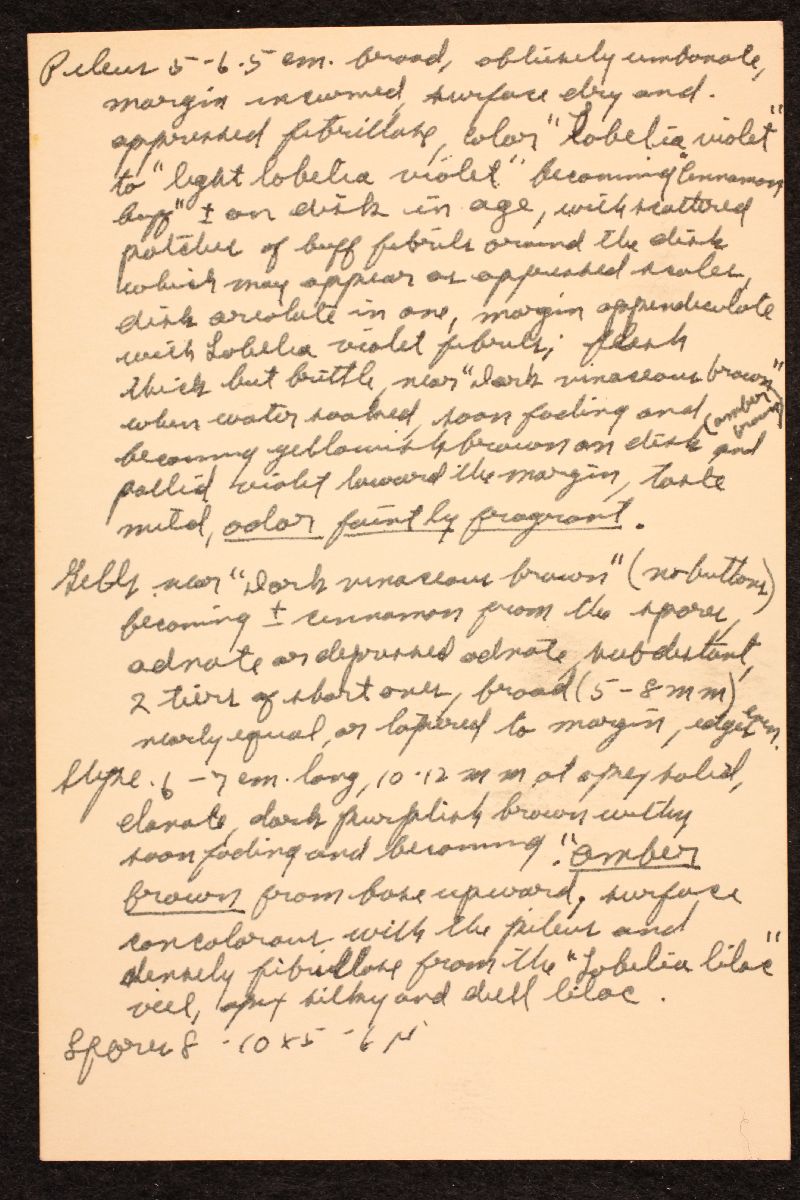 Pileus 5-6.5 cm. broad, obtusely umbonate,
margin incurved, surface dry and
appressed fibrillose, color "Lobelia violet"
to "light lobelia violet" becoming "cinnamon
buff" ± on disk in age, with scattered
patches of buff fibrils around the disk
which may appear as appressed scales,
disk areolate in one, margin appendiculate
with Lobelia violet fibrils; flesh
thick but brittle, near "dark vinaceous brown"
when water soaked, soon fading and
becoming yellowish brown on disk (amber brown) and
pallid violet toward the margin, taste
mild, odor faintly fragrant.
Gills near "dark vinaceous brown" (no buttons)
becoming ± cinnamon from the spores,
adnate or depressed adnate, subdistant,
2 tiers of short ones, broad (5-8 mm)
nearly equal, or tapered to margin, edges even.
Stipe. 6-7 cm. long, 10-12 mm at apex, solid,
clavate, dark purplish brown within
soon fading and becoming "amber
brown from base upward, surface
concolorous with the pileus and
densely fibrillose from the "Lobelia lilac"
veil, apex silky and dull lilac.
Spores 8-10 x 5-6 µ